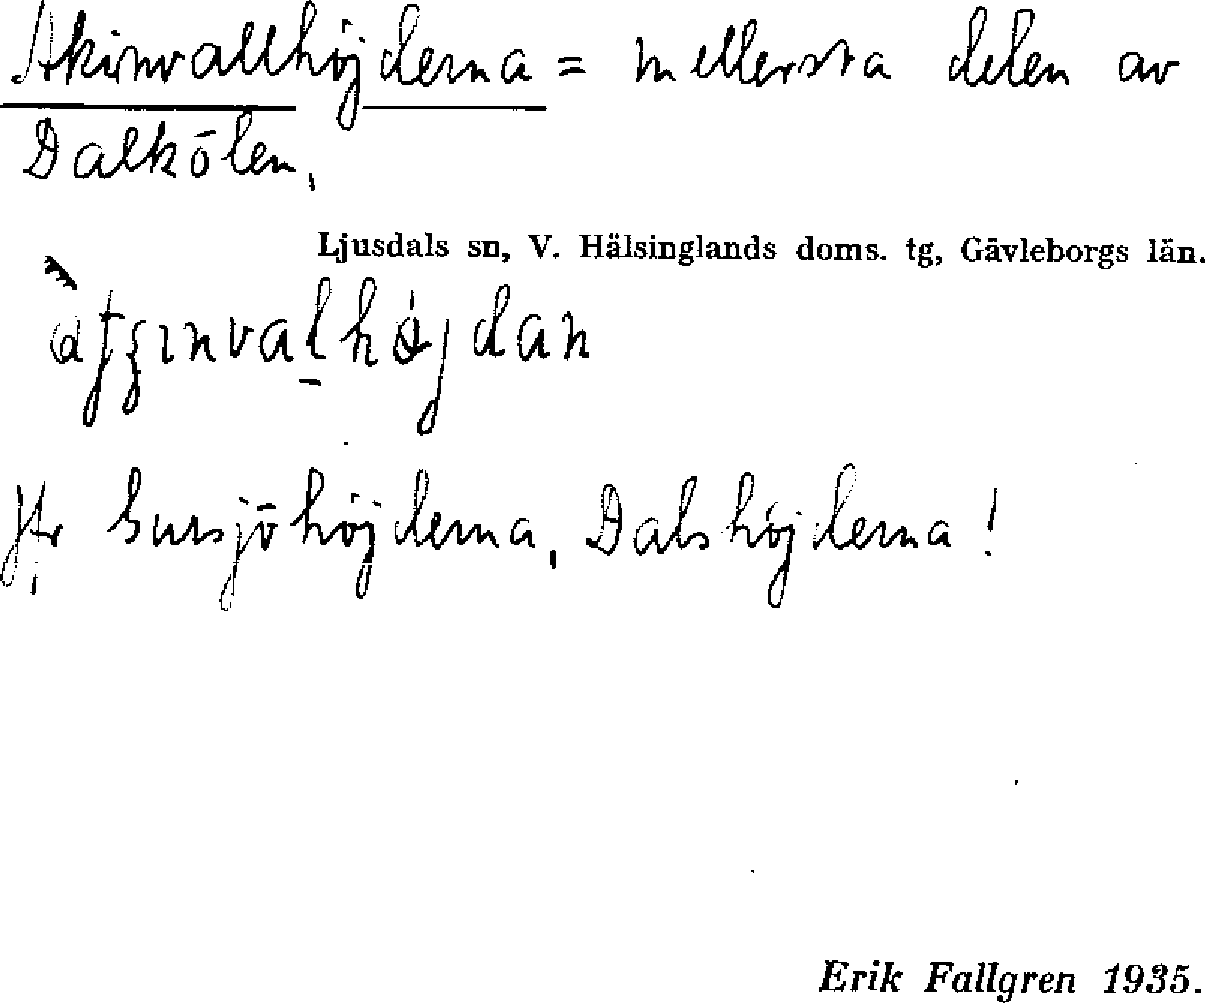 Akinvallhöjderna = mellersta delen av
Dalkölen,
Ljusdals sn, V. Hälsinglands doms. tg, Gävleborgs län.
Jfr Bursjöhöjderna, Dalshöjderna!
Erik Fallgren 1935.